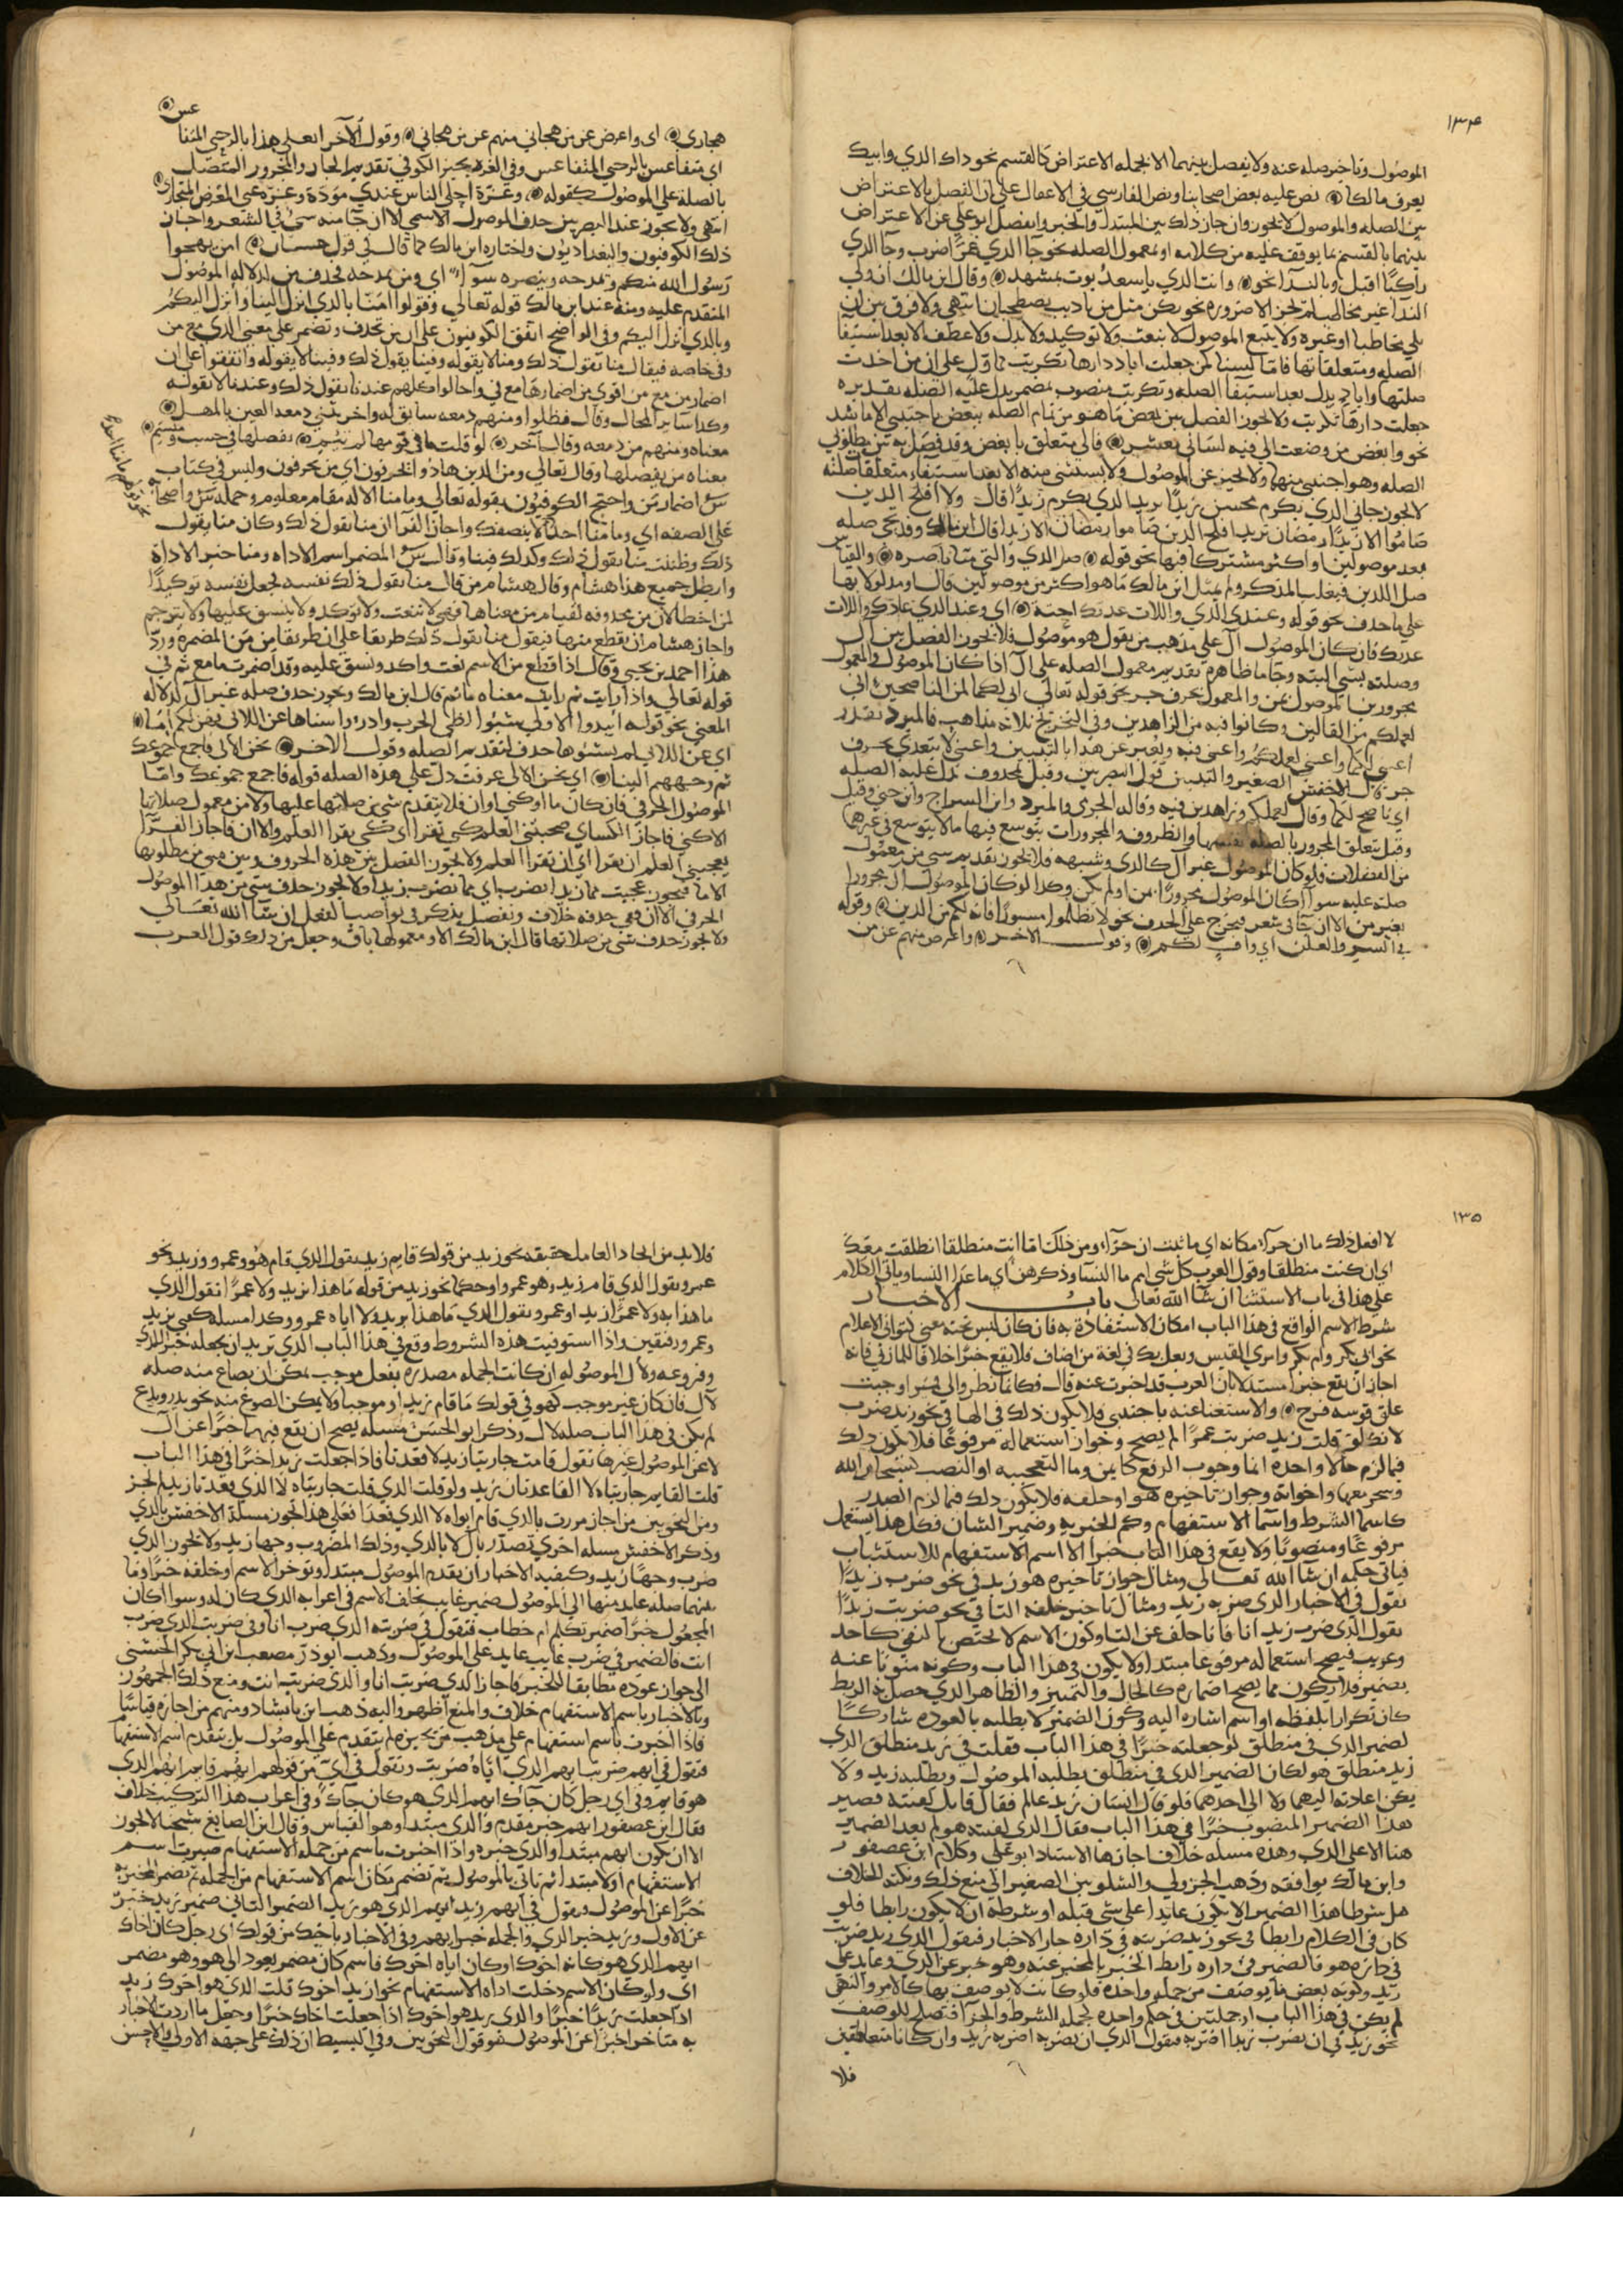 ١٣٤
الموصول وتاخر صله عنه ولا يفصل بينهما الا بجمله الاعتراض كالقسم نحو داك الذي وابيك
يعرف مالكا نص عليه بعض اصحابنا ونص الفارسي في الاغفال على ان الفصل بالاعتراض
بين الصله والموصول لا يجوز وان جاز ذلك بين المبتدا والخبر وانفصل ابو علي عن الاعتراض
بينهما بالقسم بما يوقف عليه من كلامه او بمعمول الصله نحو جا الذي عمرا ضرب وجا الذي
راكبا اقبل وبالندا نحو وانت الذي يا سعد بوت بمشهد وقال ابن مالك ان ولي
الندا غير مخاطب لم يجز الا ضروره نحو نكن مثل من يا ديب يصطحبان انتهى ولا فرق بين ان
يلي مخاطبا او غيره ولا يتبع الموصول لا بنعت ولا توكيد ولا بدل ولا عطف الا بعد استيفا
الصله ومتعلقاتها فاما لسنا كمن جعلت اياد دارها تكريت فاول على ان من اخذت
صلتها واياد بدل بعد استيفا الصله وتكريت منصوب بمضمر يدل عليه الصله تقديره
جعلت دارها تكريت ولا يجوز الفصل بين بعض ما هو من تمام الصله ببعض باجنبي الا ما شد
نحو وابغض من وضعت الي فيه لساني معشر فالي متعلق بابغض وقد فصل به بين مطلوبي
الصله وهو اجنبي منها ولا يخبر عن الموصول ولا يستثنى منه الا بعد استيفاء متعلقات صلته
لا يجوز جاني الذي يكرم محسن زيدا تريد الذي يكرم زيدا قال ولا افلح الذين
صاموا الا زيدا رمضان تريد افلح الذين صاموا رمضان الا زيدا قال ابن مالك وقد يجي صله
بعد موصولين او اكثر مشتركا فيها نحو قوله صل الذي والتي متا باصره والقياس
صل اللذين فيغلب المذكر ولم يمثل ابن مالك ما هو اكثر من موصولين قال او مدلولا بها
على ما حذف نحو قوله وعندي الذي واللات عدنك احنة اي وعند الذي عادك واللات
عدنك فان كان الموصول ال على مذهب من يقول هو موصول فلا يجوز الفصل بين ال
وصلته بشي البته وجا ما ظاهره تقديم معمول الصله على ال اذا كان الموصول والمعمول
مجرورين الموصول بمن والمعمول بحرف جر نحو قوله تعالى اني لكما لمن الناصحين اني
لعملكم من القالين وكانوا فيه من الزاهدين وفي التخريج ثلاثه مذاهب فالمبرد تقدير
اعني لكما واعني لعملكم واعني فيه ويعبر عن هذا بالتبيين واعني لا يتعدى بحرف
جر قال الاخفش الصغير والتبيين قول البصريين وقيل بمحذوف تدل عليه الصله
اي ناصح لكما وقال لعملكم وزاهدين فيه وقاله الجرمي والمبرد وابن السراج وابن جني وقيل
وقيل يتعلق المجرور بالصله نفسها والظروف والمجرورات يتوسع فيها ما لا يتوسع في غيرها
من الفضلات فلو كان الموصول غير ال كالذي وشبهه فلا يجوز تقديم شي من معمول
صلته عليه سوا اكان الموصول مجرورا بمن او لم يكن وكذا لو كان الموصول ال مجرورا
بغير من الا ان جا في شعر فيخرج على الحذف نحو لا تظلموا مسورا فانه لكم من الذين وقوله
في السر والعلن اي واف لكم وقول الاخر واعرض منهم عن من
هجاري اي واعرض عن من هجاني منهم عن من هجاني وقول الآخر ابعلي هذا بالرحى المتقا
عس
اي متقاعس بالرحى المتقاعس وفي الغره يجيز الكوفي تقديم الجار والمجرور المتصل
بالصلة على الموصول كقوله وعزة احلى الناس عندي مودة وعزة عني المعرض المتجاني
انتهى ولا يجوز عند البصريين حذف الموصول الاسمي الا ان جا منه شي في الشعر واجاز
ذلك الكوفيون والبغداديون واختاره ابن مالك مما قال في قول حسان امن يهجوا
رسول الله منكم ويمدحه وينصره سوا اي ومن يمدحه فحذف من لدلاله الموصول
المتقدم عليه ومنه عند ابن مالك قوله تعالى وقولوا امنا بالذي انزل الينا وانزل اليكم
وبالذي انزل اليكم وفي الواضح اتفق الكوفيون على ان من تحذف وتضمر على معنى الذي مع من
وفي خاصه فيقال منا يقول ذلك ومنا لا يقوله وفينا يقول ذلك وفينا لا يقوله واتفقوا على ان
اضمار من مع من اقوى من اضمارها مع في واحالوا كلهم عندنا يقول ذلك وعندنا لا يقوله
وكذا سائر المحال وقال فظلوا ومنهم دمعه سابق له واخر يثني دمعة العين بالمهل
معناه ومنهم من دمعه وقال آخر لو قلت ما في قومها لم تيثم يفضلها في حسب وميسم
معناه من يفضلها وقال تعالى ومن الذين هادوا يحرفون اي من يحرفون وليس في كتاب
س اضمار من واحتج الكوفيون بقوله تعالى وما منا الا له مقام معلوم وحمله س واصحابه
على الصفه اي وما منا احد الا ينصفك واجاز الفرا ان منا يقول ذلك وكان منا يقول
ذلك وظننت منا يقول ذلك وكذلك فينا وقال س المضمر اسم الاداه ومنا خبر الاداة
وابطل جميع هذا هشام وقال هشام من قال منا يقول ذلك نفسه لجعل نفسه توكيدا
لمن اخطا لان من محذوفه لقيام من معناها فهي لا تنعت ولا توكد ولا ينسق عليها ولا يترجم
واجاز هشام ان يقطع منها فيقول منا يقول ذلك طريقا على ان طريقا من من المضمره ورد
هذا احمد بن يحيى وقال اذا قطع من الاسم نعت واكد ونسق عليه وقد اضمرت ما مع ثم في
قوله تعالى واذا رايت ثم رايت معناه ما ثم قال ابن مالك ويجوز حذف صله غير ال لدلاله
المعنى نحو قوله ابيدوا الاولى شبوا لظى الحرب وادرءوا سناها عن اللائي فهن لكم اما
اي عن اللائي لم يشبوها حذف لتقديم الصله وقول الاخر نحن الالى فاجمع جموعك
ثم وجههم الينا اي نحن الالى عرفت دل على هذه الصله قوله فاجمع جموعك واما
الموصول الحرفي فان كان ما او كي او ان فلا يتقدم شي من صلاتها عليها ولا من معمول صلاتها
الا كي فاجاز الكساي صحبتني العلم كي تقرا اي كي يقرا العلم والا ان فاجاز الفرا
يعجبني العلم ان يقرا اي ان تقرا العلم ولا يجوز الفصل بين هذه الحروف وبين شي من مطلوبها
الا ما فيجوز عجبت مما زيدا تضرب اي مما تضرب زيدا ولا يجوز حذف شي من هذا الموصول
الحرفي الا ان وفي حذفه خلاف وتفصل يذكر في نواصب الفعل ان شا الله تعالى
ولا يجوز حذف شي من صلاتها قال ابن مالك الا ومعمولها باق وجعل من ذلك قول العرب
١٣٥
لا افعل ذلك ما ان حراء مكانه اي ما ثبت ان حراء ومن ذلك اما انت منطلقا انطلقت معك
اي ان كنت منطلقا وقول العرب كل شي امم ما النسا وذكرهن اي ما عدا النسا وياتي الكلام
على هذا في باب الاستثنا ان شا الله تعالى باب الاخبار
شرط الاسم الواقع في هذا الباب امكان الاستفادة به فان كان ليس تحته معنى كثواني الاعلام
نحو ابي بكر وام بكر وامري القيس وبعل بك في لغة من اضاف فلا يقع خبرا خلافا للمازني فانه
اجاز ان يقع خبرا مستدلا بان العرب قد اخبرت عنه قال فكانما نظروا الى قمر او حيث
علق قوسه قزح والاستغنا عنه باجنبي فلا يكون ذلك في الها في نحو زيد ضربته
لانك لو قلت زيد ضربت عمرا لم يصح وجواز استعماله مرفوعا فلا يكون ذلك
فيما لزم حالا واحده اما وجوب الرفع كايمن وما التعجبيه او النصب كسبحان الله
وسحر معينا واخواته وجواز تاخيره هو او خلفه فلا يكون ذلك فيما لزم الصدر
كاسما الشرط واسما الاستفهام وكم الخبريه وضمير الشان فكل هذا يستعمل
مرفوعا ومنصوبا ولا يقع في هذا الباب خبرا الا اسم الاستفهام للاستثبات
فياتي حكمه ان شا الله تعالى ومثال جواز تاخيره هو زيد في نحو ضرب زيدا
تقول في الاخبار الذي ضربه زيد ومثال تاخير خلفه التا في نحو ضربت زيدا
تقول الذي ضرب زيدا انا فانا خلف عن التا وكون الاسم لا يختص بالنفي كاحد
وعريب فيصح استعماله مرفوعا مبتدا ولا يكون في هذا الباب وكونه منوبا عنه
بضمير فلا يكون مما يصح اضماره كالحال والتمييز والظاهر الذي حصل به الربط
كان تكرارا بلفظه او اسم اشاره اليه وكون الضمير لا يطلبه بالعوده شاركا
لضمير الذي في منطلق لو جعلته خبرا في هذا الباب فقلت في زيد منطلق الذي
زيد منطلق هو لكان الضمير الذي في منطلق يطلبه الموصول ويطلبه زيد ولا
يمكن اعادته اليهما ولا الى احدهما فلو قال انسان زيد عالم فقال قايل لقيته فصير
هذا الضمير المنصوب خبرا في هذا الباب فقال الذي لقيته هو لم يعد الضمير
هنا الا على الذي وهذه مسله خلاف اجازها الاستاد ابو علي وكلام ابن عصفور
وابن مالك يوافقه وذهب الجزولي والشلوبين الصغير الى منع ذلك ونكته الخلاف
هل شرط هذا الضمير الا يكون عايدا على شي قبله او شرطه ان لا يكون رابطا فلو
كان في الكلام رابطا في نحو زيد ضربته في داره جاز الاخبار فيقول الذي زيد ضربته
في داره هو فالضمير في داره رابط الخبر بالمخبر عنه وهو خبر عن الذي وعايد على
زيد وكونه بعض ما يوصف من جمله واحده فلو كانت لا يوصف بها كالامر والنهي
لم يكن في هذا الباب او جملتين في حكم واحده كجمله الشرط والجزا فتصلح للوصف
نحو زيد في ان يضرب زيدا اضربه فيقول الذي ان يضربه اضربه زيد وان كانا متعاطفين
فلا
فلا بد من اتحاد العامل حقيقه نحو زيد من قولك قام زيد يقول الذي قام هو وعمرو وزيد نحو
عمرو يقول الذي قام زيد وهو عمرو او حكما نحو زيد من قوله ما هذا بزيد ولا عمرا يقول الذي
ما هذا به ولا عمرا زيد او عمرو يقول الذي ما هذا بزيد ولا اياه عمرو وكذا مسله كفى بزيد
وعمرو رفيقين واذا استوفيت هذه الشروط وقع في هذا الباب الذي تريد ان يجعله خبر الذي
وفروعه ولال الموصوله ان كانت الجمله مصدره بفعل موجب يمكن ان يصاغ منه صله
لال فان كان غير موجب كهو في قولك ما قام زيد او موجبا ولا يمكن الصوغ منه نحو يذر ويدع
لم يكن في هذا الباب صله لال وذكر ابو الحسن مسله يصح ان يقع فيها خبرا عن ال
لا عن الموصول غيرها تقول قامت جاريتا زيد لا قعدتا فاذا جعلت زيدا خبرا في هذا الباب
قلت القايم جاريتاه لا القاعدتان زيد ولو قلت الذي قلت جاريتاه لا الذي قعدتا زيد لم يجز
ومن النحويين من اجاز مررت بالذي قام ابواه لا الذي قعدا فعلى هذا تجوز مسلة الاخفش بالذي
وذكر الاخفش مسله اخرى تصدر بال لا بالذي وذلك المضروب وجها زيد ولا يجوز الذي
ضرب وجها زيد وكيفيه الاخبار ان يقدم الموصول مبتدا وتوخر الاسم او خلفه خبرا وما
بينهما صله عايد منها الى الموصول ضمير غايب يخلف الاسم في اعرابه الذي كان له وسوا اكان
المجعول خبرا ضمير تكلم ام خطاب فتقول في ضربته الذي ضرب انا وفي ضربت الذي ضرب
انت فالضمير في ضرب غايب عايد على الموصول وذهب ابو ذر مصعب ابن ابي بكر الخشني
الى جواز عوده مطابقا للخبر فاجاز الذي ضربت انا والذي ضربت انت ومنع ذلك الجمهور
وبالاخبار باسم الاستفهام خلاف والمنع اظهر واليه ذهب ابن بابشاد ومنهم من اجازه قياسا
فاذا اخبرت باسم استفهام على مذهب من يجيزه لم يتقدم على الموصول بل يتقدم اسم الاستفهام
فتقول في ايهم ضربت ايهم الذي اياه ضربت وتقول في اي من قولهم ايهم قام ايهم الذي
هو قام وفي اي رجل كان جاك ايهم الذي هو كان جاك وفي اعراب هذا التركيب خلاف
فقال ابن عصفور ايهم خبر مقدم والذي مبتدا وهو القياس وقال ابن الصايغ شيخنا لا يجوز
الا ان يكون ايهم مبتدا والذي خبره واذا اخبرت باسم من جمله الاستفهام صيرت اسم
الاستفهام اولا مبتدا ثم تاتي بالموصول ثم تضمر مكان اسم الاستفهام من الجمله ثم تضمر المخبر به
خبرا عن الموصول ويقول في ايهم زيد ايهم الذي هو زيد الضمير الثاني ضمير زيد خبر
عن الاول وزيد خبر الذي والجمله خبر ايهم وفي الاخبار باخيك من قولك اي رجل كان اخاك
ايهم الذي هو كانه اخوك او كان اياه اخوك فاسم كان مضمر يعود الى هو وهو مضمر
اي ولو كان الاسم دخلت اداه الاستفهام نحو ازيد اخوك قلت الذي هو اخوك زيد
اذا جعلت زيدا خبرا والذي زيد هو اخوك اذا جعلت اخاك خبرا وجعل ما اردت الاخبار
به متاخرا خبرا عن الموصول هو قول النحويين وفي البسيط ان ذلك على جهه الاولى والاحسن